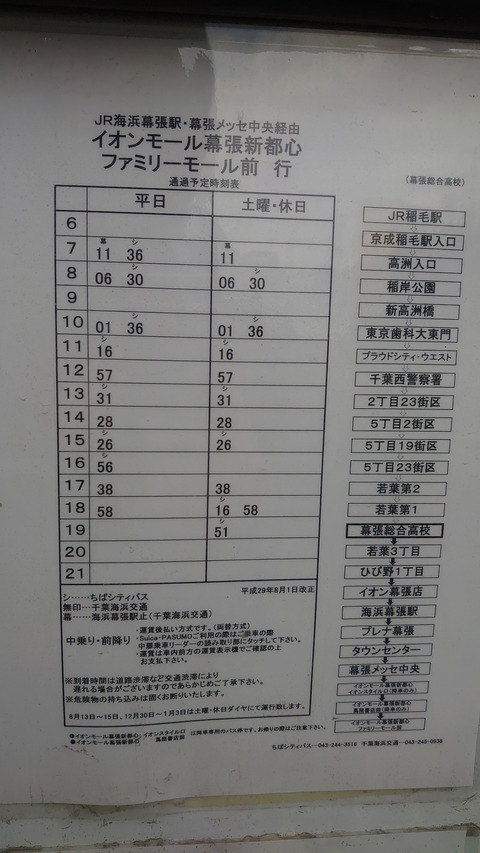 JR海浜幕張駅・幕張メッセ中央経由
イオンモール幕張新都心
ファミリーモール前 行
(幕張総合高校)
通過予定時刻表
平日 土曜・休日
6
幕 シ 幕
7 11 36 11
シ シ
8 06 30 06 30
9
シ シ
10 01 36 01 36
シ シ
11 16 16
12 57 57
シ シ
13 31 31
14 28 28
シ シ
15 26 26
シ
16 56
17 38 38
シ
18 58 16 58
シ
19 51
20
21
平成29年8月1日改正
シ……ちばシティバス
無印…千葉海浜交通
幕……海浜幕張駅止(千葉海浜交通)
中乗り・前降り
・運賃後払い方式です。(両替方式)
・Suica・PASUMOご利用の際はご乗車の際
中扉乗車リーダーの読み取り部にタッチして下さい。
・運賃は車内前方の運賃表示機でご確認の上
お支払下さい。
※到着時間は道路渋滞など交通渋滞により
遅れる場合がございますのであらかじめご了承下さい。
※危険物の持ち込みは固くお断りいたします。
8月13日~15日、12月30日~1月3日は土曜・休日ダイヤにて運行致します。
JR稲毛駅
京成稲毛駅入口
高洲入口
稲岸公園
新高洲橋
東京歯科大東門
プラウドシティ・ウエスト
千葉西警察署
2丁目23街区
5丁目2街区
5丁目19街区
5丁目23街区
若葉第2
若葉第1
幕張総合高校
若葉3丁目
ひび野1丁目
イオン幕張店
海浜幕張駅
プレナ幕張
タウンセンター
幕張メッセ中央
イオンモール幕張新都心
イオンスタイル口(降車のみ)
イオンモール幕張新都心
蔦屋書店前(降車のみ)
イオンモール幕張新都心
ファミリーモール前
●イオンモール幕張新都心 イオンスタイル口
●イオンモール幕張新都心 蔦屋書店前
は降車専用のバス停です。お帰りの際はご注意下さい。
ちばシティバス…043-244-3516 千葉海浜交通…043-245-0938